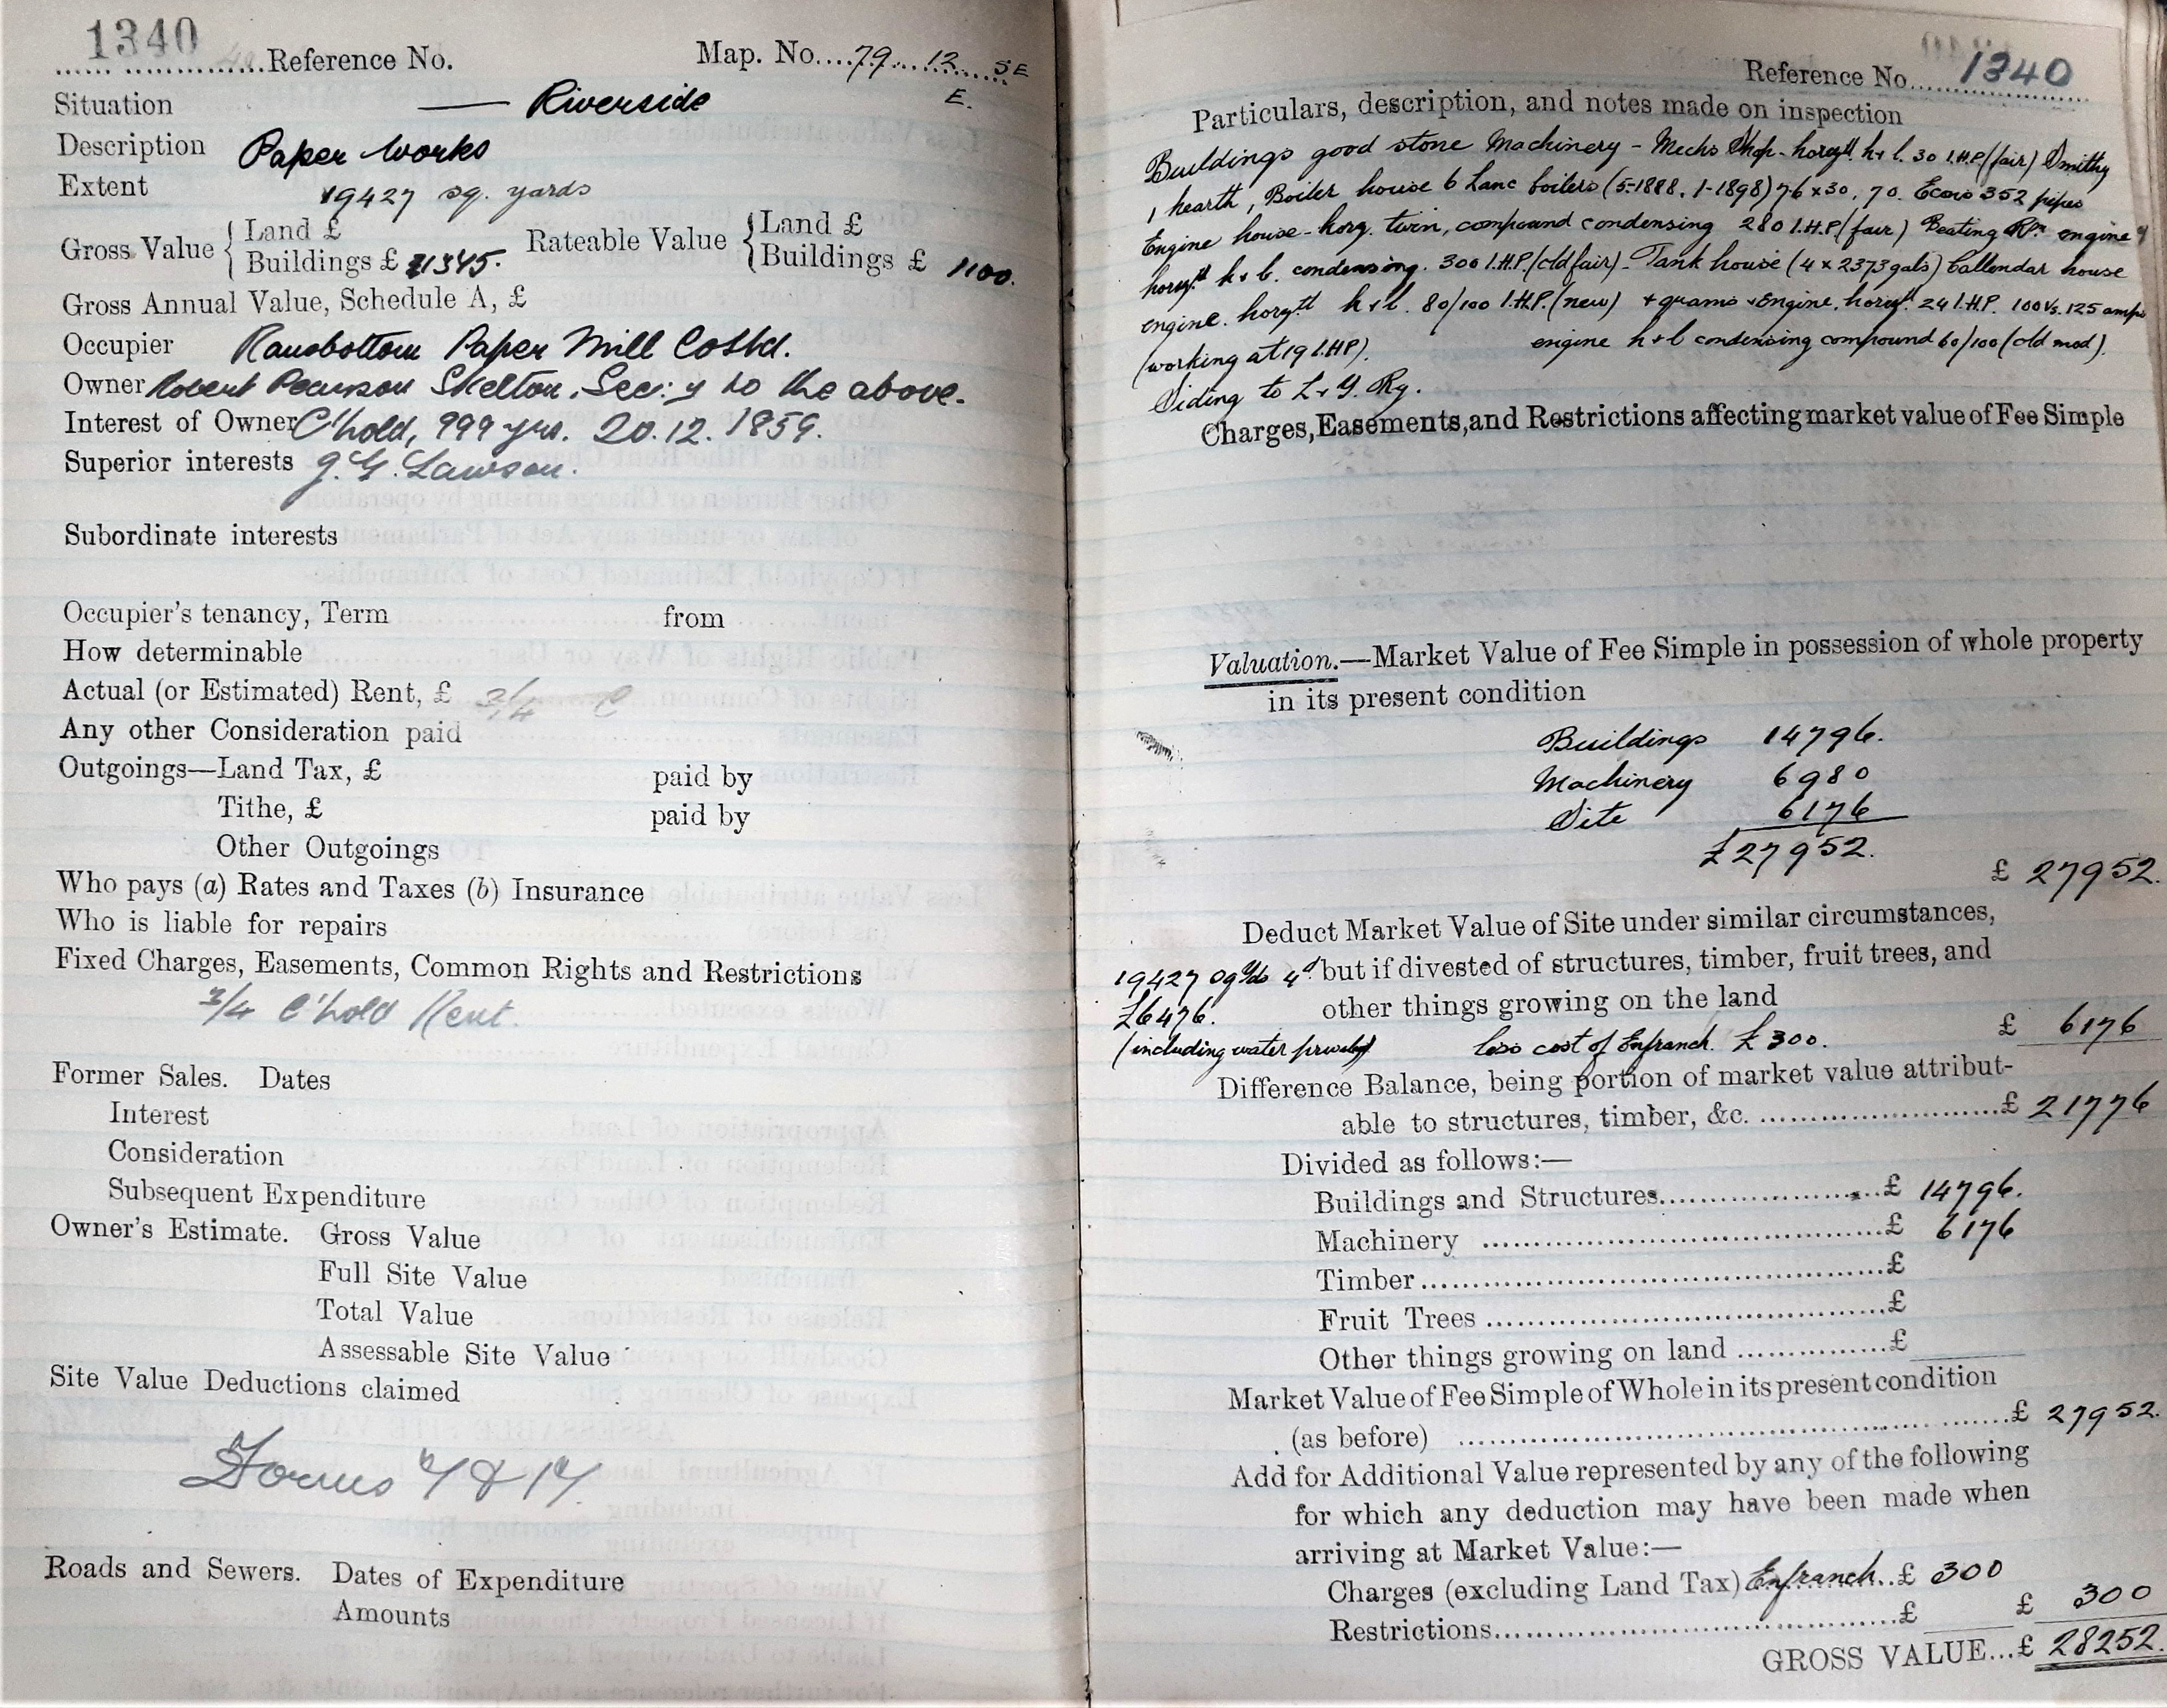 1340
Reference No. Map. No. 79 12 SE
E.
Situation — Riverside
Description Paper Works
Extent 19427 sq. yards
Gross Value { Land £
Buildings £ 1345. Rateable Value { Land £
Buildings £ 1100.
Gross Annual Value, Schedule A, £
Occupier Ramsbottom Paper Mill Co Ltd.
Owner Robert Pearson Skelton, Sec:y to the above.
Interest of Owner C'hold, 999 yrs. 20.12.1859.
Superior interests J.G. Lawson.
Subordinate interests
Occupier's tenancy, Term from
How determinable
Actual (or Estimated) Rent, £ 3/4 C
Any other Consideration paid
Outgoings—Land Tax, £ paid by
Tithe, £ paid by
Other Outgoings
Who pays (a) Rates and Taxes (b) Insurance
Who is liable for repairs
Fixed Charges, Easements, Common Rights and Restrictions
3/4 C'hold Rent.
Former Sales. Dates
Interest
Consideration
Subsequent Expenditure
Owner's Estimate. Gross Value
Full Site Value
Total Value
Assessable Site Value
Site Value Deductions claimed
Forms 4 & 14
Roads and Sewers. Dates of Expenditure
Amounts
Reference No. 1340
Particulars, description, and notes made on inspection
Buildings good stone Machinery - Mechs Shop - horyll. h+l. 30 I.H.P (fair) Smithy
1 hearth, Boiler house 6 Lanc boilers (5-1888, 1-1898) 76 x 30, 70. Econs 352 pipes
Engine house - horz. twin, compound condensing 280 I.H.P (fair) Beating Rm engine
h+l. condensing. 300 I.H.P. (old fair) - Tank house (4 x 2373 gals) Callendar house
engine. h+l. 80/100 I.H.P. (new) Engine, 24 I.H.P. 100 Vs. 125 amps
(working at 19 I.HP). engine h+l condensing compound 60/100 (old mod).
Siding to L+Y. Ry.
Charges, Easements, and Restrictions affecting market value of Fee Simple
Valuation.—Market Value of Fee Simple in possession of whole property
in its present condition
Buildings 14796.
Machinery 6980
Site 6176
£27952.
£ 27952.
Deduct Market Value of Site under similar circumstances,
19427 sq Yds 4d but if divested of structures, timber, fruit trees, and
£6476. other things growing on the land
£ 6176
(including water less cost of Enfranch. £300.
Difference Balance, being portion of market value attribut-
able to structures, timber, &c. £ 21776
Divided as follows:—
Buildings and Structures £ 14796.
Machinery £ 6176
Timber £
Fruit Trees £
Other things growing on land £
Market Value of Fee Simple of Whole in its present condition
(as before) £ 27952.
Add for Additional Value represented by any of the following
for which any deduction may have been made when
arriving at Market Value:—
Charges (excluding Land Tax) Enfranch. £ 300
Restrictions £ £ 300
GROSS VALUE...£ 28252.